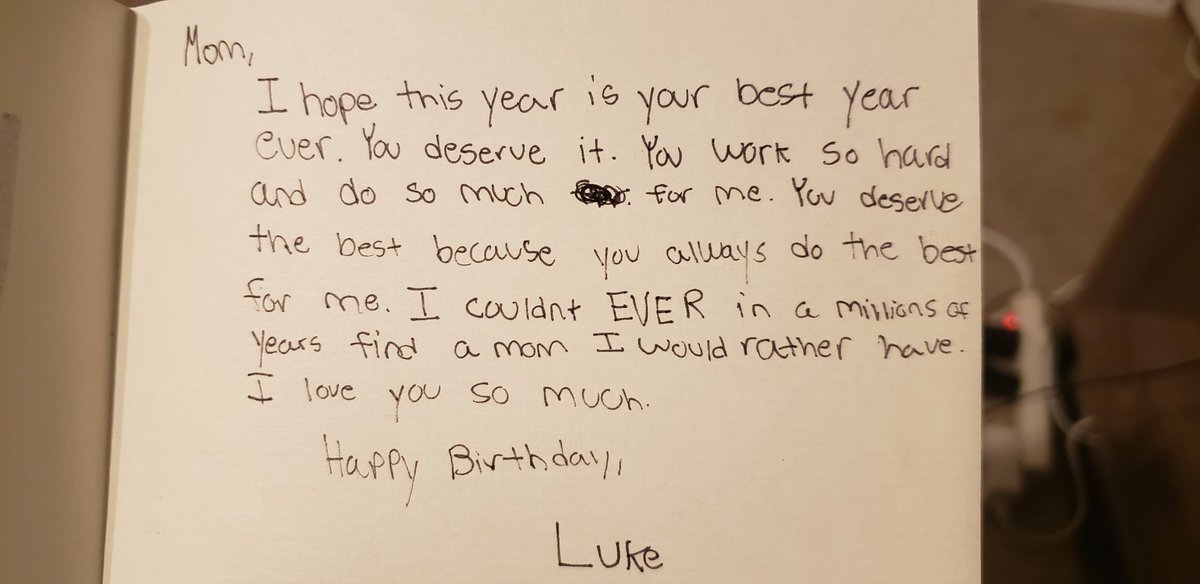 Mom,
I hope this year is your best year
ever. You deserve it. You work so hard
and do so much for me. You deserve
the best because you always do the best
for me. I couldnt EVER in a millions of
years find a mom I would rather have.
I love you so much.
Happy Birthday,
Luke